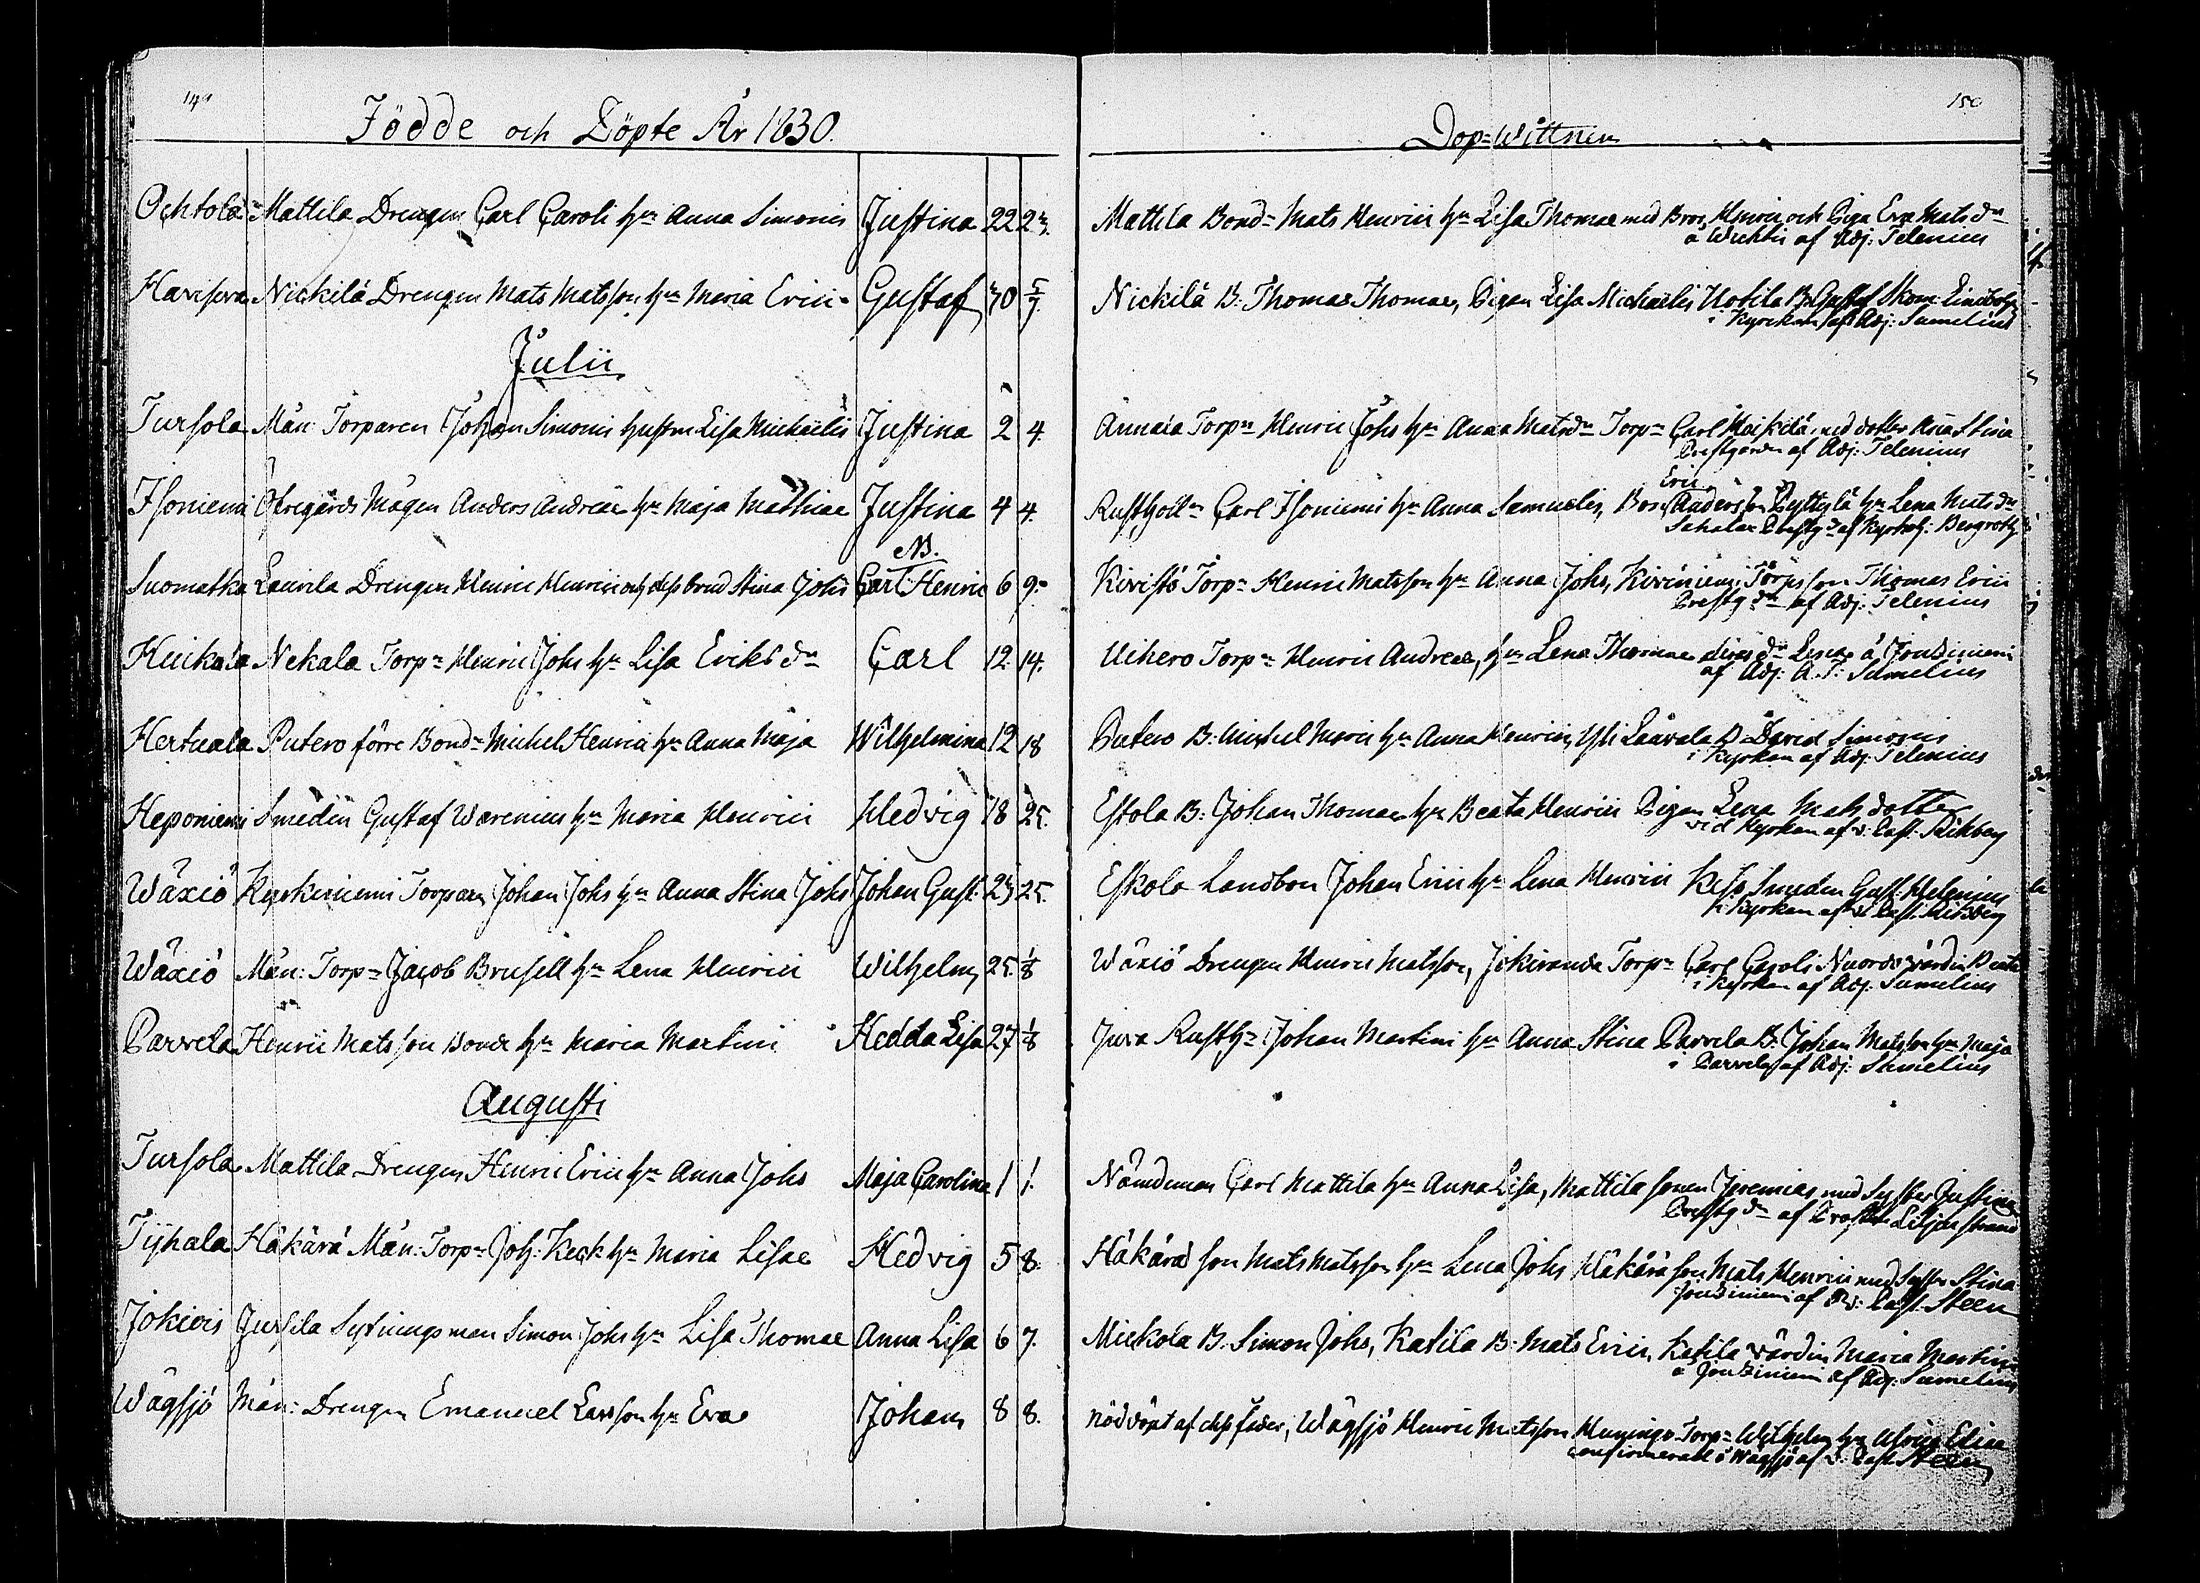 149
Födde och Döpte År 1830.
Ochtola Mattila Drengen Carl Caroli hn Anna Simonis Justina 22 27.
Harisova Nickilä Drengen Mats Matsson hn Maria Erici Gustaf 30 5/7.
Julii
Tursola Mån: Torparen Johan Simonis hustru Lisa Michaelis Justina 2 4.
Isoniemi Öfregårds Mågen Anders Andreæ hn Maja Mathiæ Justina 4 4.
NB.
Suomatka Laurila Drengen Henric Henrici och dess brud Stina Johs Carl Henric 6 9.
Nekala Torpn Henric Johs hn Lisa Eriks dn Carl 12. 14.
Hertuala Putero förre Bondn Michel Henrici hn Anna Maja Wilhelmina 12 18
Heponiemi Smeden Gustaf Warenius hn Maria Henrici Hedvig 18 25.
Wäxiö Kyrkiniemi Torparn Johan Johs hn Anna Stina Johs Johan Gust: 23 25.
Wäxiö Mån: Torpn Jacob Brusell hn Lena Henrici Wilhelm 25. 1/8
Parvela Henric Matsson Bonde hn Maria Martini Hedda Lisa 27 1/8
Augusti
Tursola Mattila Drengen Henric Erici hn Anna Johs Maja Carolina 1 1.
Tyhala Häkärä Mån: Torpn Joh: Keck hn Maria Lisæ Hedvig 5 8.
Jokiois Jussila Sytningsman Simon Johs hn Lisa Thomæ Anna Lisa 6 7.
Wägsjö Mån: Drengen Emanuel Larsson hn Eva Johan 8 8.
150
Dop=Wittnen
Mattila Bondn Mats Henrici hn Lisa Thomæ med Bror Henric och Piga Eva Mats dn
å Wuhtis af Adj: Telenius
Nickilä B: Thomas Thomæ, Pigan Lisa Michaelis Uotila B: Gustaf Skom:
i Kyrckan af Adj: Sumelius
Annala Torpn Henric Johs hn Anna Matsdn Torpn Carl med dotter Stina
Prestgården af Adj: Telenius
Eric
Rusthåln Carl Isoniemi hn Anna Samuelis, Bos: Andersson Pyttylä hn Lena Mats dn
Prestgn af Kyrkoh: Bergroth
Kivistö Torpn Henric Matsson hn Anna Johs, Kiviniemi Torpn son Thomas Erici
Prestg dn af Adj: Telenius
Uihero Torpn Henric Andreæ, hn Lena Thomæ deras dn Lena å Joudiniemi
af Adj: A. T: Sumelius
Putero B: Michel hn Anna Henrici, Yli Laavala B David Simonis
i Kyrkan af Adj: Telenius
Estola B: Johan Thomæ hn Beata Henrici Pigan Lena Mats dotter
vid Kyrkan af v: Past: Rikberg
Eskola Landbon Johan Erici hn Lena Henrici Smeden Gust: Helenius
i Kyrkan af v: Past: Rikberg
Wäxiö Drengen Henric Matsson, Jokiranda Torpn Carl Caroli värdin Beata
i Kyrkan af Adj: Sumelius
Juva Rusth: Johan Martini hn Anna Stina Parvela B: Johan Matsson hn Maja
i Parvela af Adj: Sumelius
Nämdeman Carl Mattila hn Anna Lisa, Mattila sonen Jeremias med Syster Justina
Prestg dn af Prosten Liljestrand
Häkärä son Mats Matsson hn Lena Johs Häkärä son Mats Henrici med Syster Stina
Joudiniemi af v: Past: Steen
Mickola B. Simon Johs, Katila B: Mats Erici, Katila värdin Maria Martini
å Joudiniemi af Adj: Sumelius
nöddöpt af dess fader, Wägsjö Henric Matsson Torpn Wilhelm hn Ulrica Eliæ
confirmerat i Wägsjö af v: Past: Steen